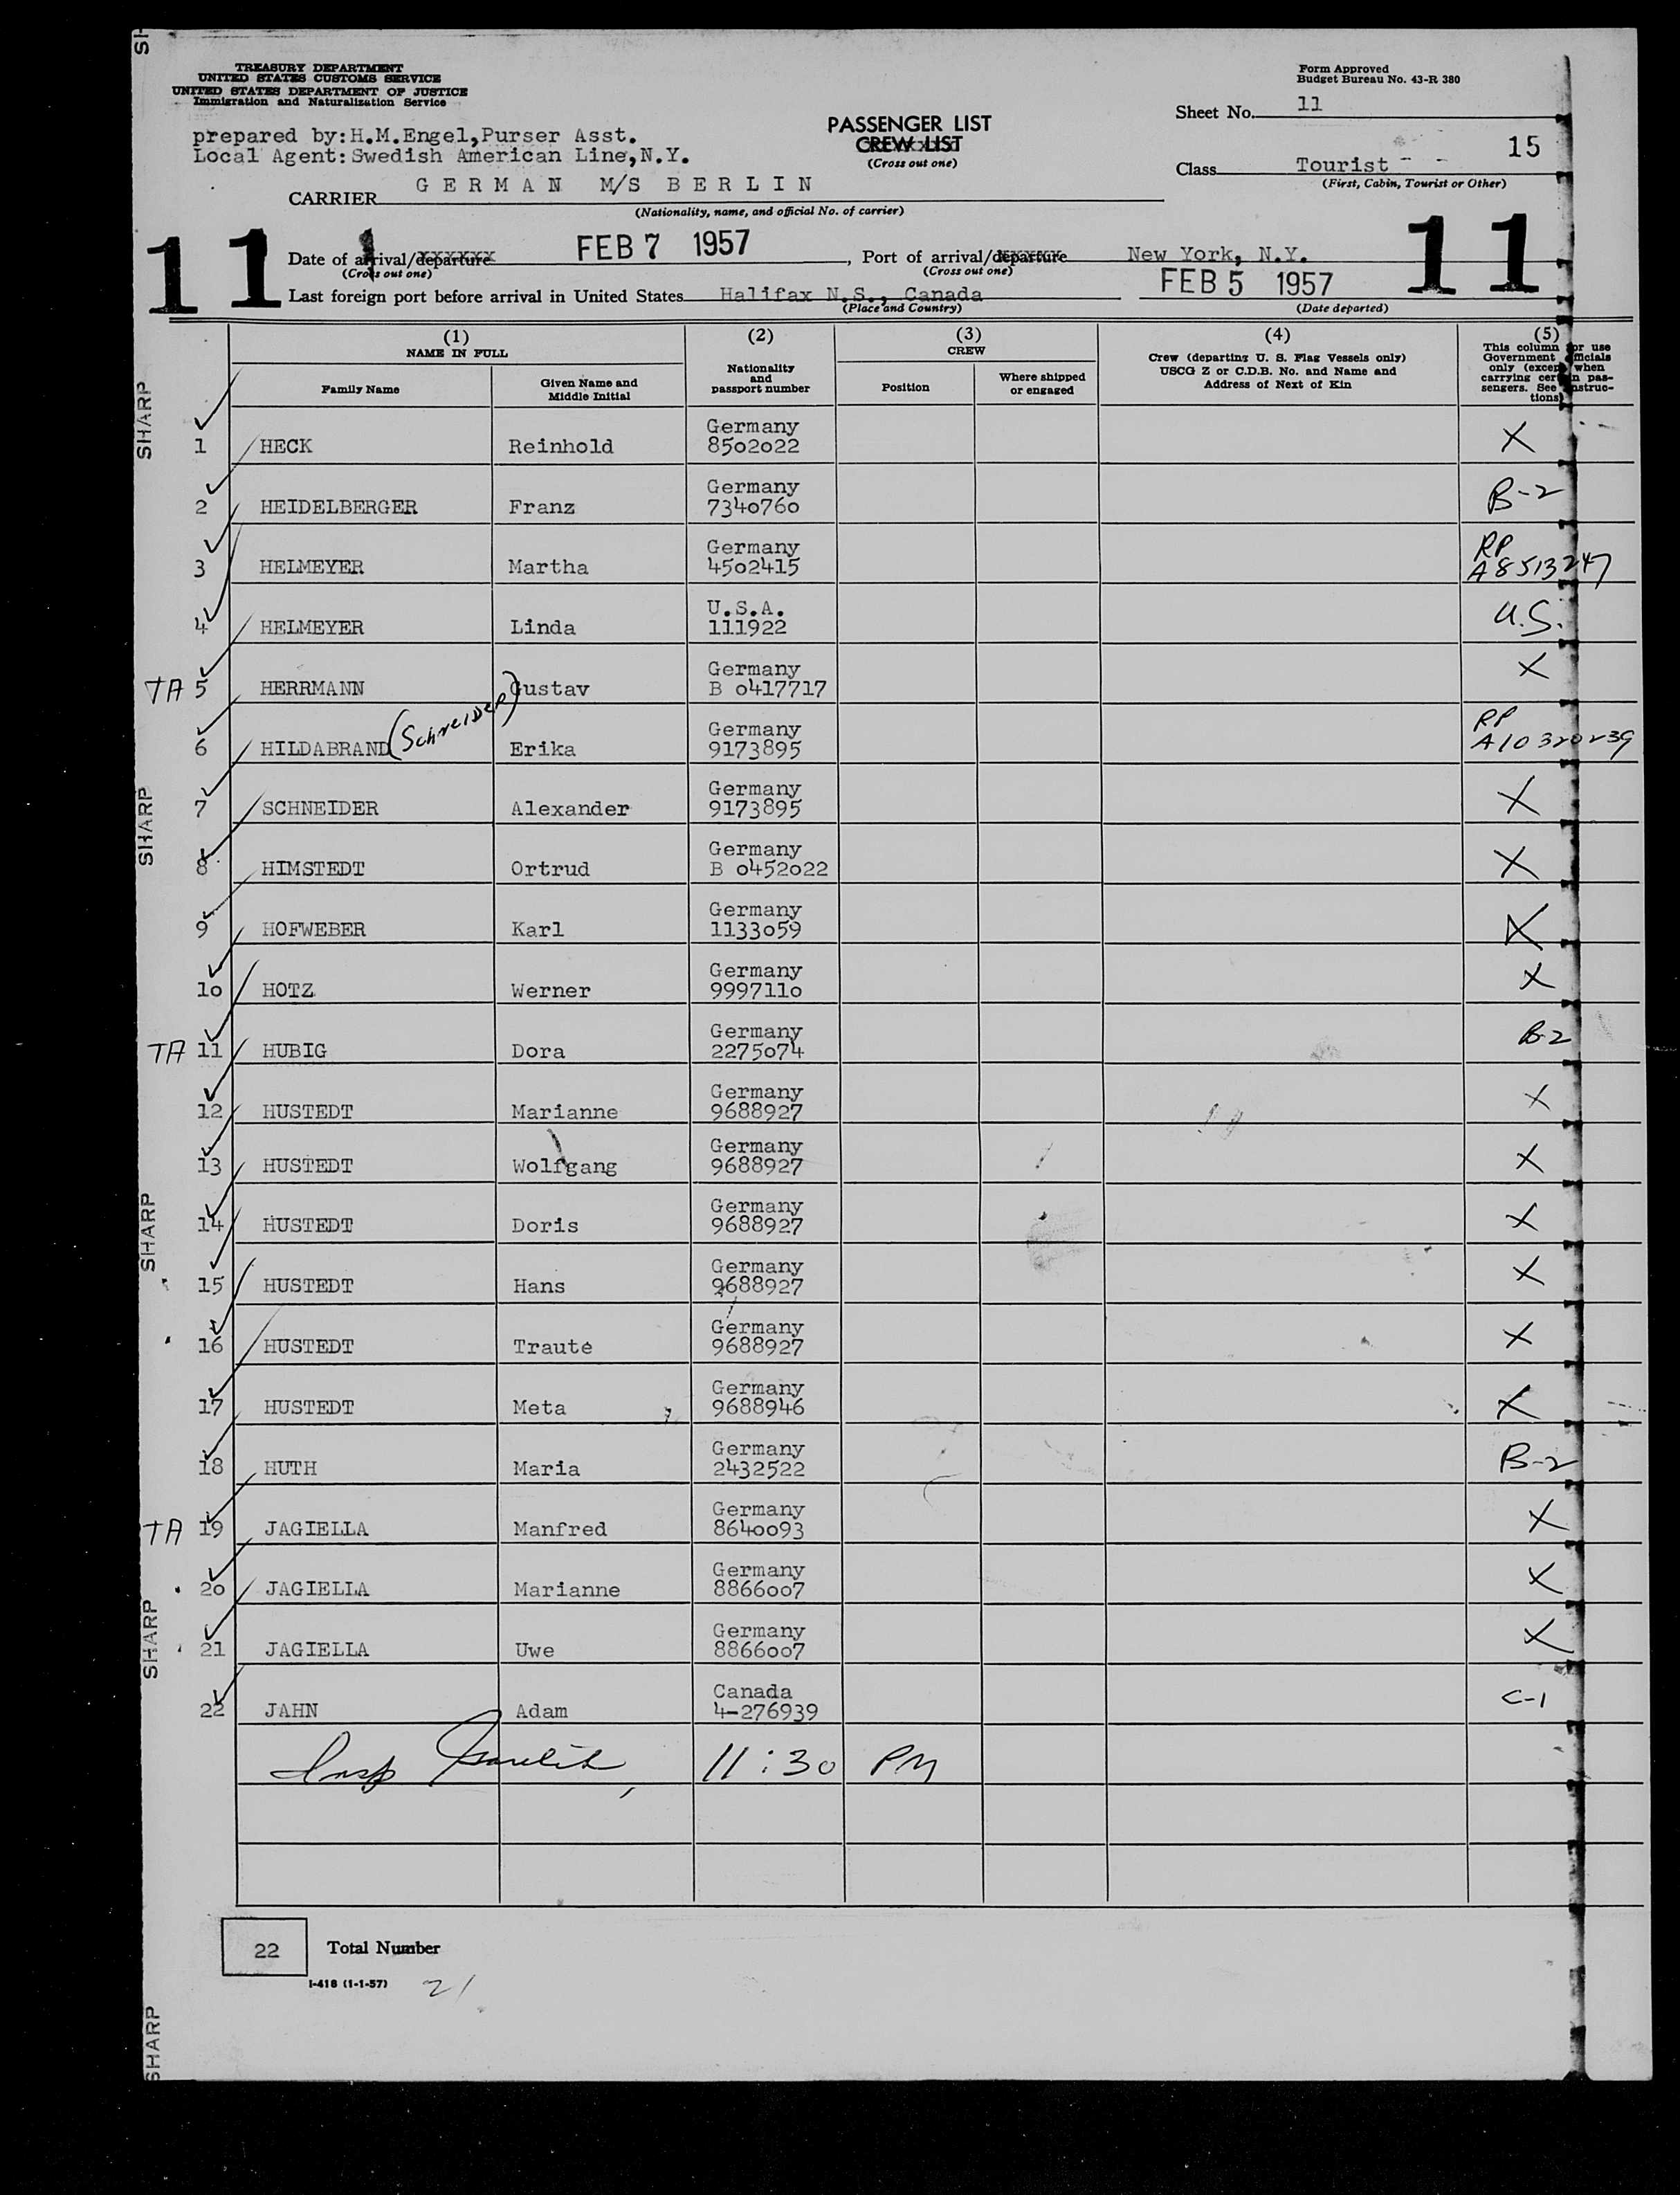 TREASURY DEPARTMENT
UNITED STATES CUSTOMS SERVICE
UNITED STATES DEPARTMENT OF JUSTICE
Immigration and Naturalization Service
Form Approved
Budget Bureau No. 43-R 380
prepared by:H.M.Engel,Purser Asst.
Local Agent:Swedish American Line,N.Y.
PASSENGER LIST
CREW LIST
(Cross out one)
Sheet No. 11
15
Class Tourist - -
(First, Cabin, Tourist or Other)
CARRIER GERMAN M/S BERLIN
(Nationality, name, and official No. of carrier)
11 11
Date of arrival/departure FEB 7 1957, Port of arrival/departure New York, N.Y.
(Cross out one) (Cross out one)
Last foreign port before arrival in United States Halifax N.S., Canada FEB 5 1957
(Place and Country) (Date departed)
(1) (2) (3) (4) (5)
NAME IN FULL
Family Name
Given Name and Middle Initial
Nationality and passport number
CREW
Position
Where shipped or engaged
Crew (departing U. S. Flag Vessels only)
USCG Z or C.D.B. No. and Name and
Address of Next of Kin
This column for use
Government officials
only (except when
carrying certain pas-
sengers. See instruc-
tions)
1 HECK Reinhold Germany 8502022 X
2 HEIDELBERGER Franz Germany 7340760 B-2
3 HELMEYER Martha Germany 4502415 RP A8513247
4 HELMEYER Linda U.S.A. 111922 U.S.
TA 5 HERRMANN Gustav Germany B 0417717 X
6 HILDABRAND (Schneider) Erika Germany 9173895 RP A10320239
7 SCHNEIDER Alexander Germany 9173895 X
8 HIMSTEDT Ortrud Germany B 0452022 X
9 HOFWEBER Karl Germany 1133059 X
10 HOTZ Werner Germany 9997110 X
TA 11 HUBIG Dora Germany 2275074 B-2
12 HUSTEDT Marianne Germany 9688927 X
13 HUSTEDT Wolfgang Germany 9688927 X
14 HUSTEDT Doris Germany 9688927 X
15 HUSTEDT Hans Germany 9688927 X
16 HUSTEDT Traute Germany 9688927 X
17 HUSTEDT Meta Germany 9688946 X
18 HUTH Maria Germany 2432522 B-2
TA 19 JAGIELLA Manfred Germany 8640093 X
20 JAGIELLA Marianne Germany 8866007 X
21 JAGIELLA Uwe Germany 8866007 X
22 JAHN Adam Canada 4-276939 C-1
Insp 11:30 PM
22 Total Number
I-418 (1-1-57) 21
SHARP
SHARP
SHARP
SHARP
SHARP